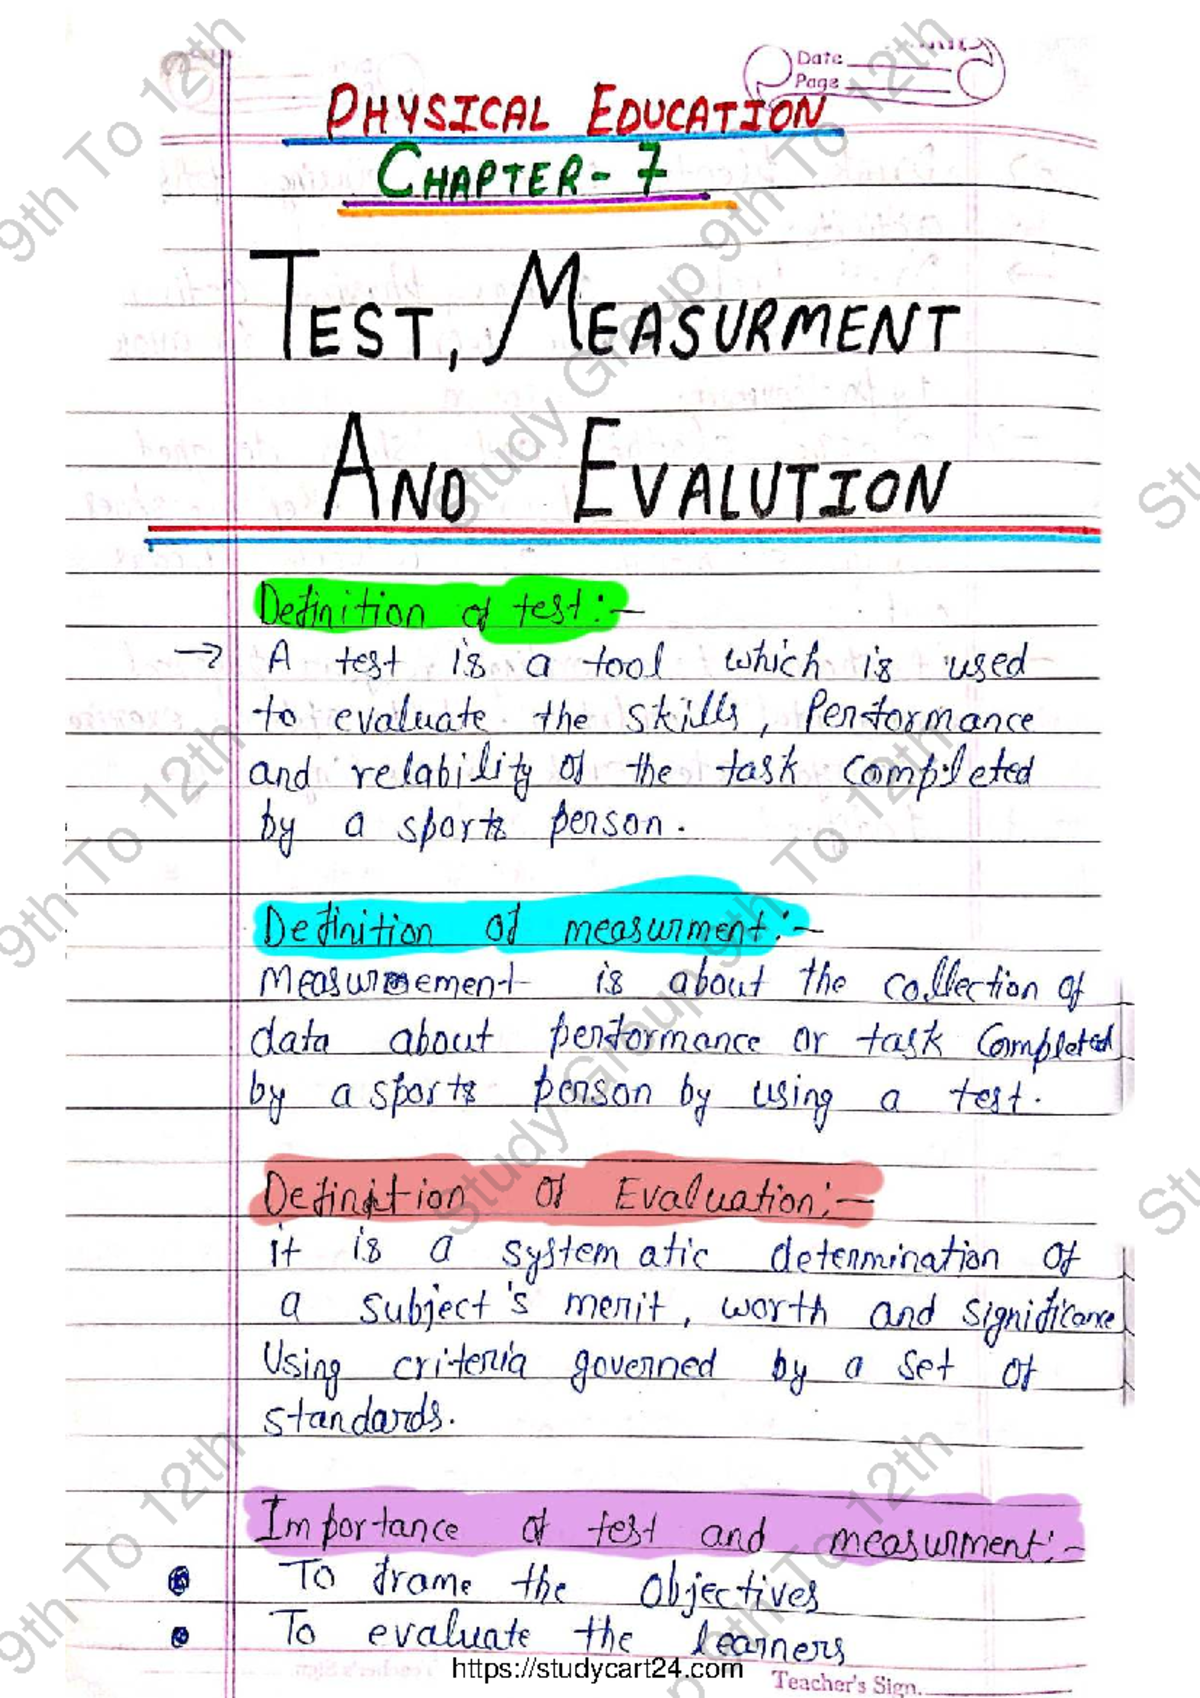 Date
Page
PHYSICAL EDUCATION
CHAPTER-7
TEST, MEASURMENT
AND EVALUTION
Definition of test:-
→ A test is a tool which is used
to evaluate the skills, Performance
and relability of the task completed
by a sports person.
Definition of measurment:-
measurement is about the collection of
data about performance or task completed
by a sports person by using a test.
Definition of Evaluation:-
it is a systematic determination of
a subject's merit, worth and significance
Using criteria governed by a set of
standards.
Importance of test and measurment:-
• To frame the objectives
• To evaluate the learners
https://studycart24.com
Teacher's Sign.
Study Group 9th To 12th